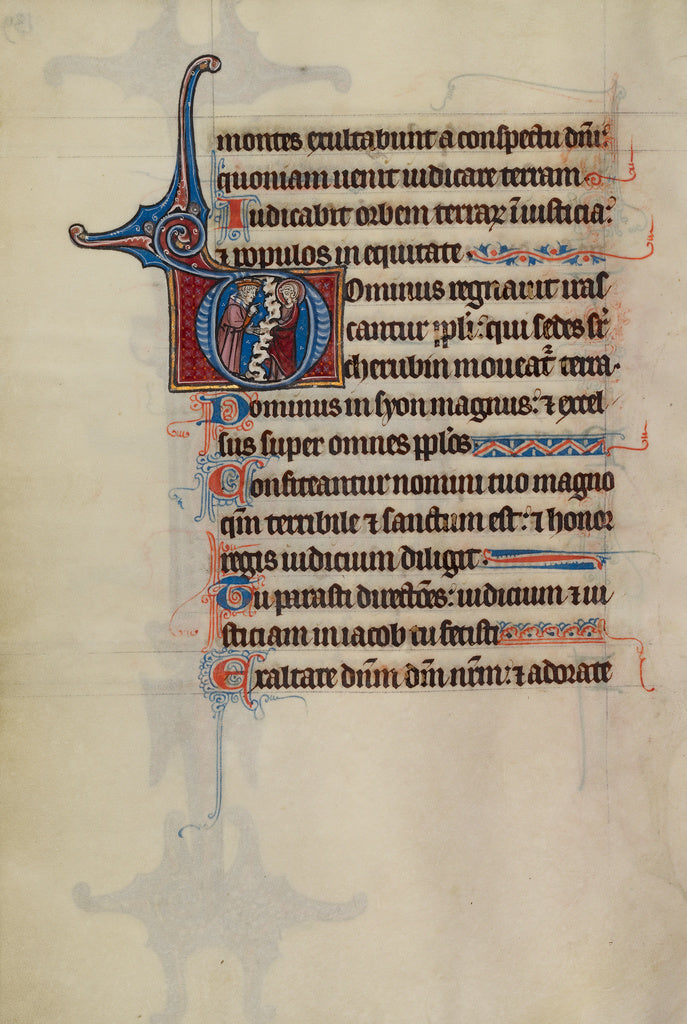 montes exultabunt a conspectu dn̄i:
quoniam uenit iudicare terram
Iudicabit orbem terraꝝ ī iusticia:
⁊ populos in equitate.
Dominus regnauit iras
cantur ppl̄i: qui sedes sr̄
cherubin moueat᷑ terra.
Dominus in syon magnus: ⁊ excel
sus super omnes pplōs
Confiteantur nomini tuo magno
qm̄ terribile ⁊ sanctum est: ⁊ honor
regis iudicium diligit.
Tu parasti directōēs: iudicium ⁊ iu
sticiam in iacob tu fecisti
Exaltate dn̄m dm̄ nr̄m: ⁊ adorate